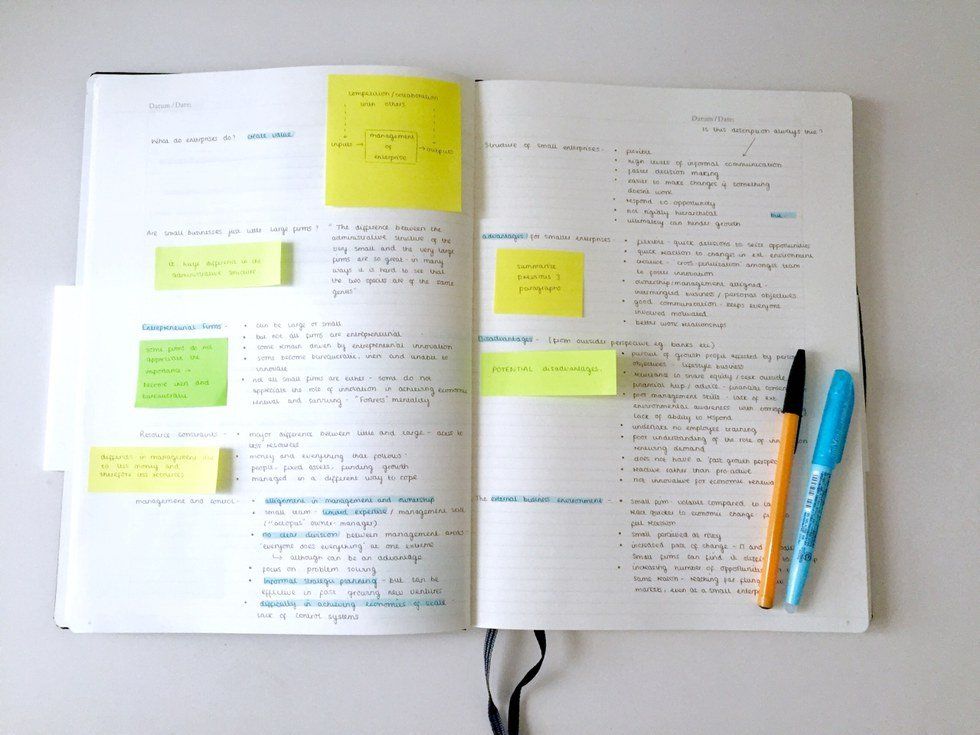 Datum / Date:
What do enterprises do? create value
competition / collaboration
with others
inputs → management → outputs
of
enterprise
Are small businesses just little large firms?
"The difference between the
administrative structure of the
very small and the very large
firms are so great - in many
ways it is hard to see that
the two species are of the same
genus"
i.e. huge difference in the
administrative structure
Entrepreneurial Firms -
• can be large or small
• but not all firms are entrepreneurial
• some remain driven by entrepreneurial innovation
• some become bureaucratic, inert and unable to
innovate
• not all small firms are either - some do not
appreciate the role of innovation in achieving economic
renewal and surviving - "Fortress" mentality
some firms do not
appreciate the
importance →
become inert and
bureaucratic
Resource constraints -
• major difference between little and large - access to
less resources
• money and everything that follows -
people, fixed assets, funding growth
• managed in a different way to cope
differends in management due
to less money and
therefore less resources
management and control -
• alignment in management and ownership
• small team - limited expertise / management skill
("octopus" owner-manager)
• no clear division between management areas
'everyone does everything' at one extreme
↳ although can be an advantage
• focus on problem solving
• informal strategic planning - but can be
effective in fast growing new ventures
• difficulty in achieving economies of scale -
• lack of control systems
Datum / Date:
is this description always true?
Structure of small enterprises -
• flexible
• high levels of informal communication
• faster decision making
• easier to make changes if something
doesnt work
• respond to opportunity
• not rigidly hierarchical but -
• ultimately can hinder growth
advantages for smaller enterprises -
• flexible - quick decisions to seize opportunities
• quick reaction to changes in ext. environment
• creative - cross-fertilisation amongst team
to foster innovation
• ownership/management aligned -
intermingled business / personal objectives
• good communication - keeps everyone
involved motivated
• better work relationships
summarise
previous 3
paragraphs
Disadvantages - (from outsider perspective eg. banks etc)
POTENTIAL disadvantages.
• pursuit of growth maybe rejected by
objectives - lifestyle business
• reluctance to share equity / seek outside
financial help / advice - financial
• poor management skills - lack of ext.
environmental awareness with
lack of ability to respond
• undertake no employee training
• poor understanding of the role of
renewing demand
• does not have a 'fast growth
• reactive rather than pro-active
• not innovative for economic renewal
The external business environment -
• small firm - volatile compared to
react quicker to economic change -
feel recession
• small perceived as risky
• increased pace of change - IT and
small firms can find it
• increasing number of
same reason - reaching far flung
markets, even as a small